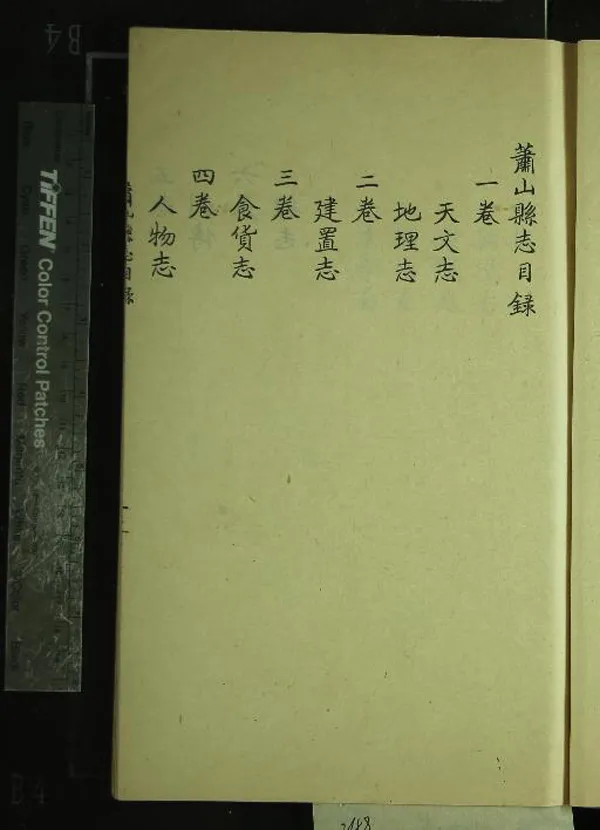 蕭山縣志目録
一卷
天文志
地理志
二卷
建置志
三卷
食貨志
四卷
人物志
蕭山縣志目録
TIFFEN Color Control Patches
B4
B4
2488